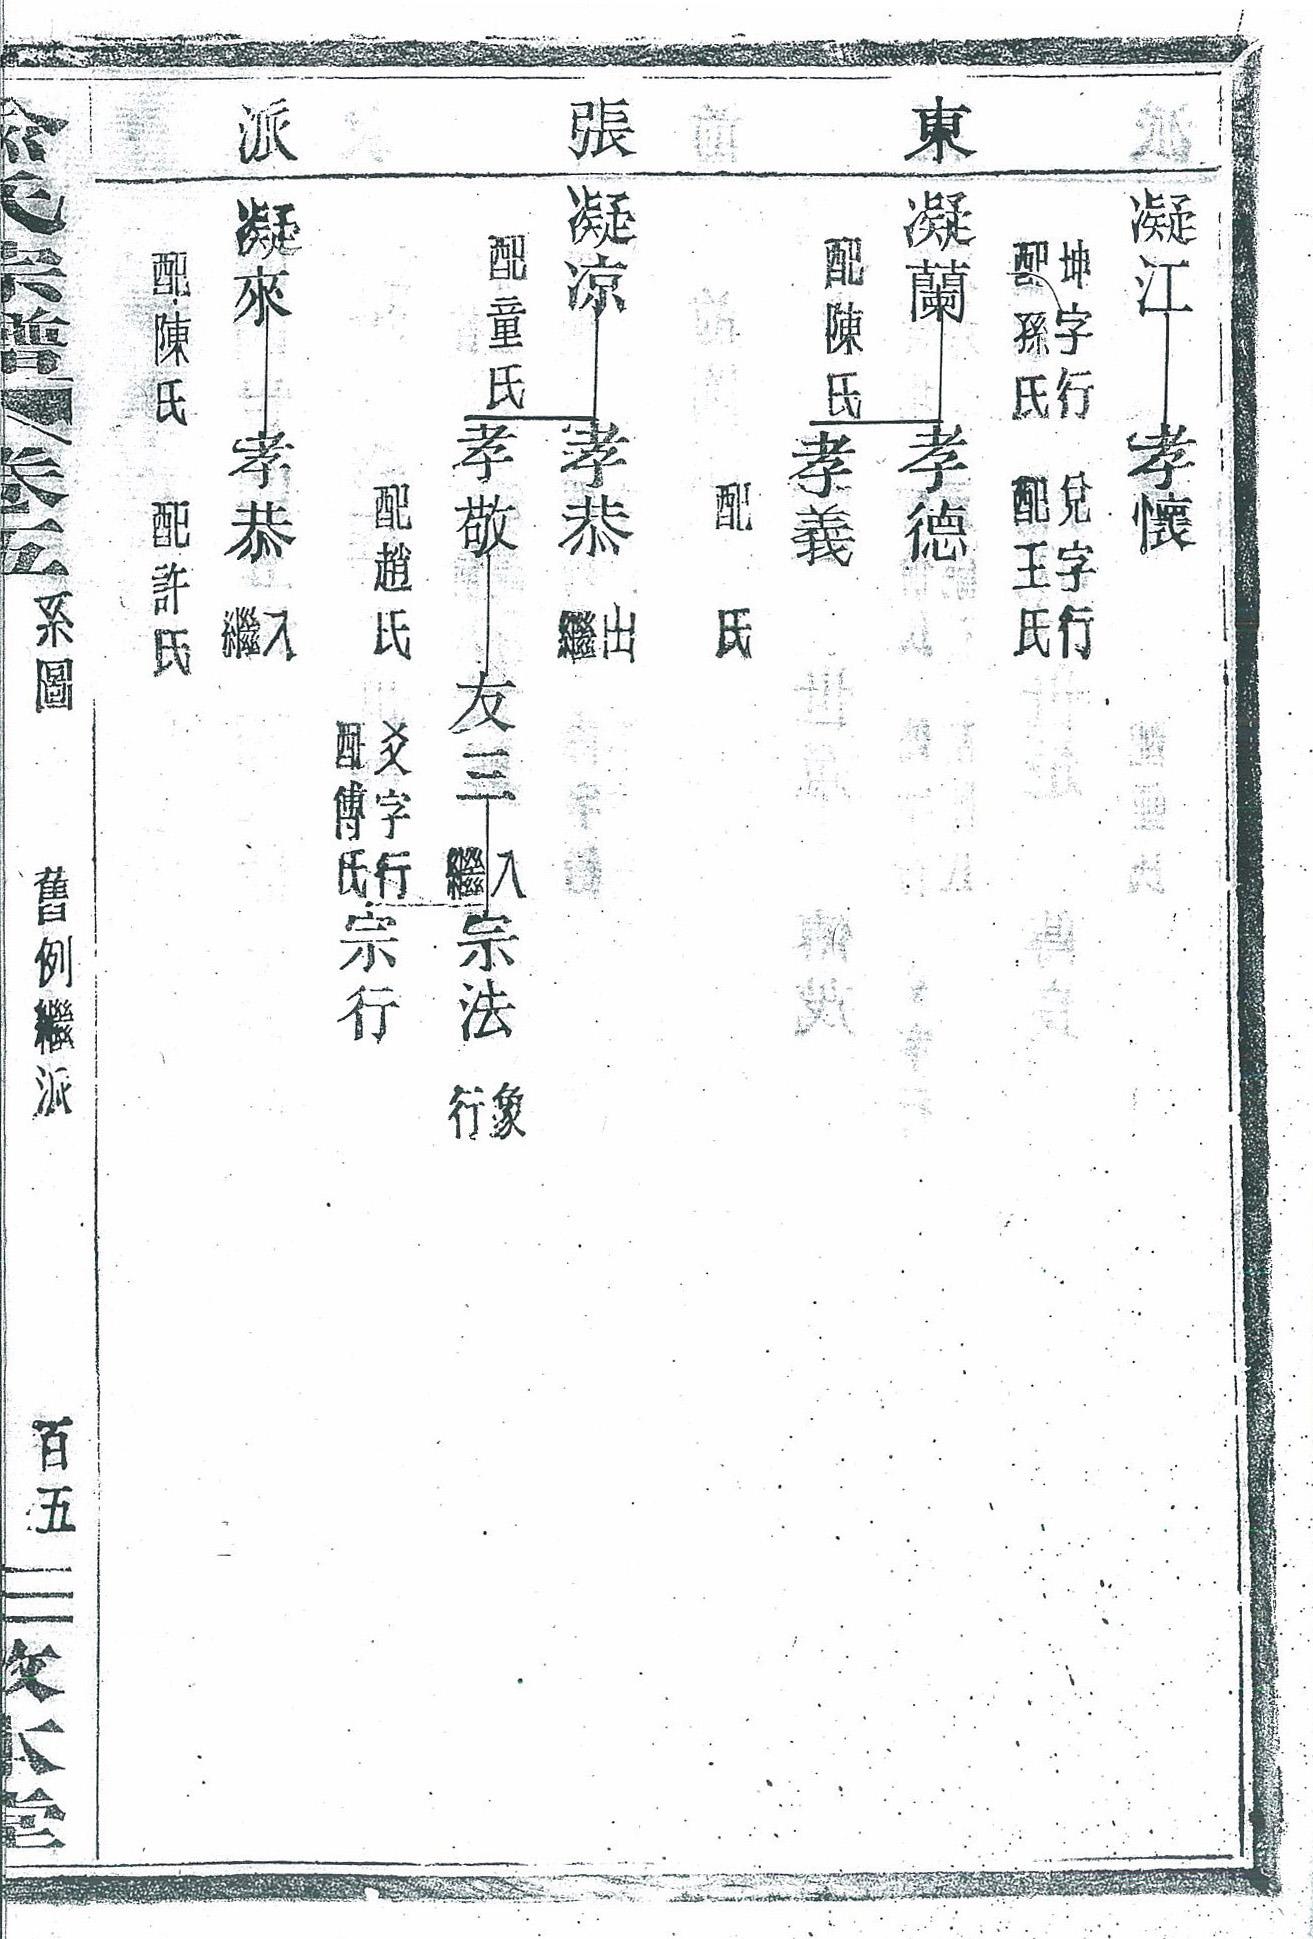 東張派
凝江
坤字行
配孫氏
孝懷
兌字行
配王氏
凝蘭
配陳氏
孝德
孝義
配 氏
凝凉
配童氏
孝恭
出繼
孝敬
配趙氏
友三
爻字行
配傅氏
入繼
宗法
象行
宗行
凝來
配陳氏
孝恭
入繼
配許氏
氏宗譜
卷五
系圖
舊例繼派
百五
本堂